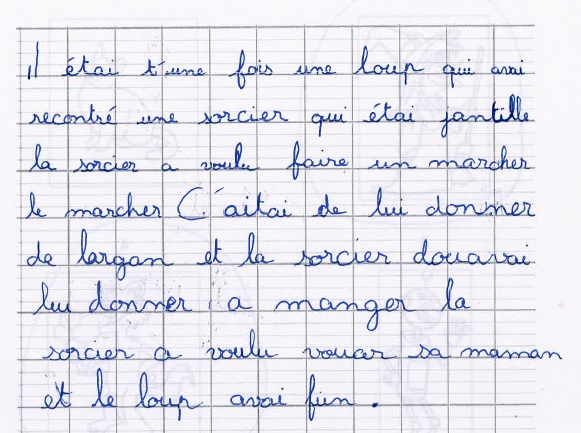 il étai t'une fois une loup qui avai
recontré une sorcier qui étai jantille
la sorcier a voulu faire un marcher
le marcher C'aitai de lui donner
de largan et la sorcier douavai
lui donner a manger la
sorcier a voulu vouar sa maman
et le loup avai fun.